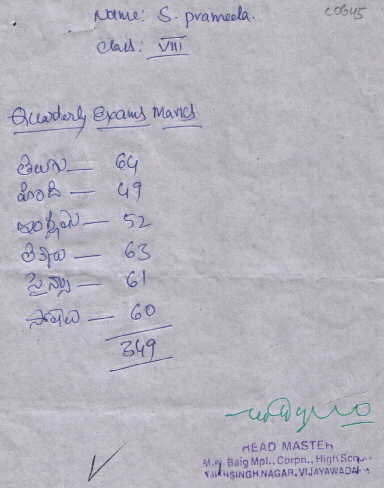 Name: S. prameela.
C0645
Class: VIII
Quarterly Exams Marks
తెలుగు — 64
హింది — 49
ఇంగ్లీషు — 52
లెక్కలు — 63
సైన్సు — 61
సోషల్ — 60
349
HEAD MASTER
M.K. Baig Mpl., Corpn., High School
SINGH NAGAR, VIJAYAWADA